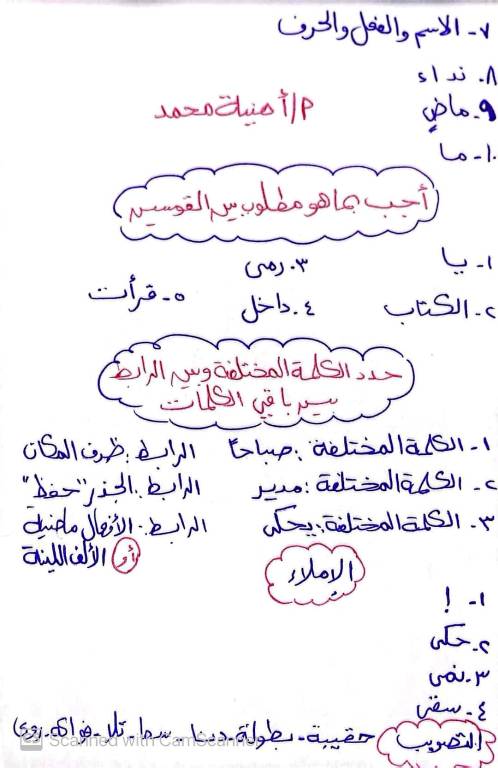 ٧- الاسم والفعل والحرف
٨. نداء
٩. ماضٍ
أ/أمنية محمد
١٠- ما
أجب بما هو مطلوب بين القوسين
١- يا ٣. رمى ٥- قرأت
٢- الكتاب ٤. داخل
حدد الكلمة المختلفة وبين الرابط
بين باقي الكلمات
١- الكلمة المختلفة: صباحًا الرابط: ظرف المكان
٢- الكلمة المختلفة: مدير الرابط: الجذر "حفظ"
٣. الكلمة المختلفة: يحكى الرابط: الأفعال ماضية
أو الألف اللينة
الإملاء
١- !
٢. حكى
٣. نمى
٤- سقى
التصويب حقيبة - بطولة - دنيا - سما - تلا
Scanned with CamScanner